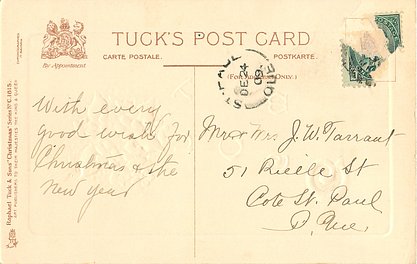 TUCK'S POST CARD
CARTE POSTALE.
POSTKARTE.
By Appointment.
(FOR ADDRESS ONLY.)
ST. PAUL
DE 24
09
QUE
With every
good wish for
Christmas & the
New Year
Mr & Mrs J. W. Tarrant
51 Rielle St
Cote St. Paul
P. Que.
Raphael Tuck & Sons' "Christmas" Series No C. 1615.
ART PUBLISHERS TO THEIR MAJESTIES THE KING & QUEEN